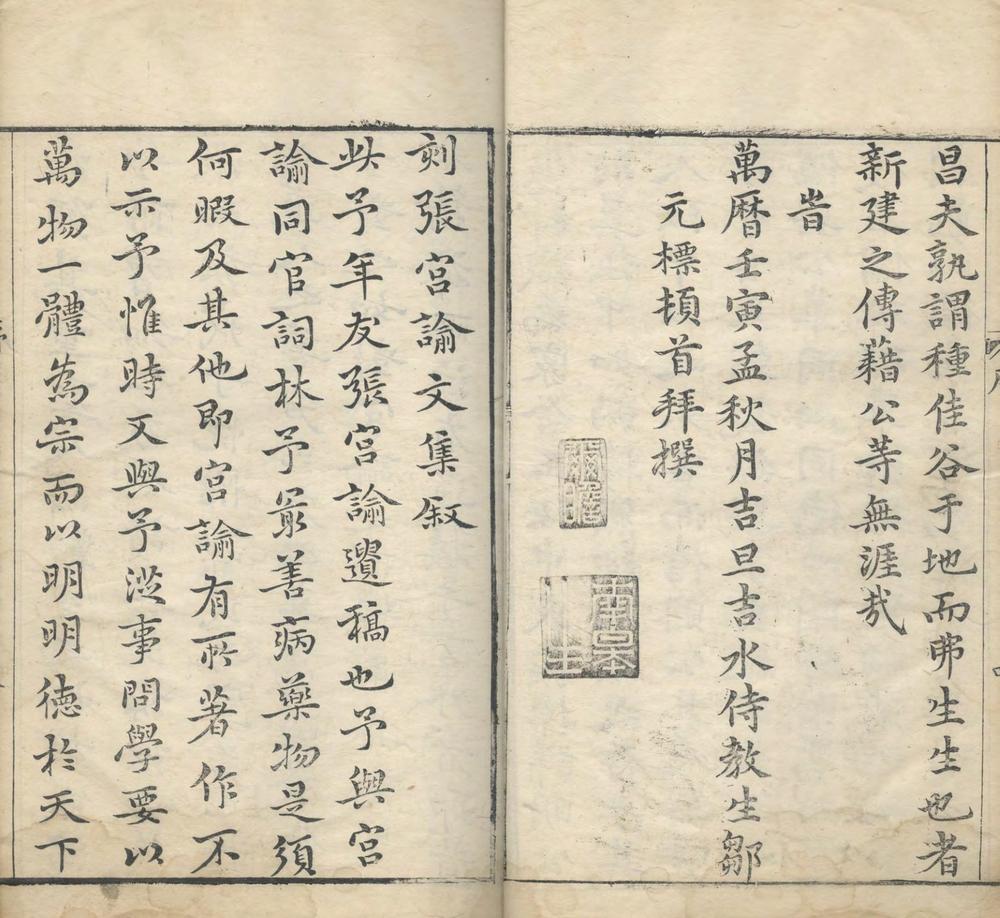 昌夫孰謂種佳谷于地而弗生生也者
新建之傳藉公等無涯哉
旹
萬曆壬寅孟秋月吉旦吉水侍教生鄒
元標頓首拜撰
刻張宮諭文集敘
此予年友張宮諭遺稿也予與宮
諭同官詞林予最善病藥物是須
何暇及其他即宮諭有所著作不
以示予惟時又與予從事問學要以
萬物一體為宗而以明明德於天下